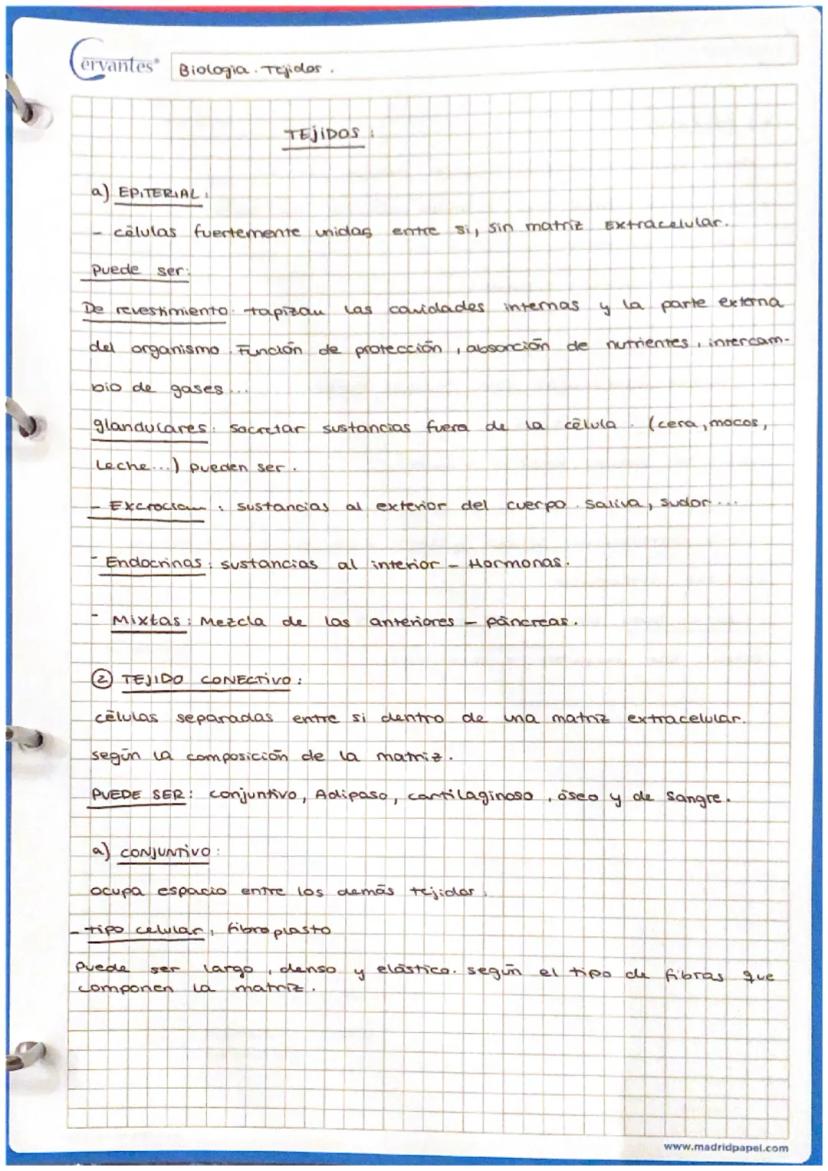 Cervantes®
Biologia. Tejidos.
TEJIDOS:
a) EPITERIAL:
- células fuertemente unidas entre si, sin matriz Extracelular.
puede ser:
De revestimiento: tapizan las cavidades internas y la parte externa
del organismo. Función de protección, absorción de nutrientes, intercam-
bio de gases...
glandulares: sacretar sustancias fuera de la célula. (cera, mocos,
leche...) pueden ser.
- : sustancias al exterior del cuerpo. Saliva, sudor...
- Endocrinas: sustancias al interior - Hormonas.
- Mixtas: Mezcla de las anteriores - páncreas.
② TEJIDO CONECTIVO:
células separadas entre si dentro de una matriz extracelular.
según la composición de la matriz.
PUEDE SER: conjuntivo, Adiposo, cartilaginoso, óseo y de sangre.
a) CONJUNTIVO:
ocupa espacio entre los demás tejidos.
- tipo celular, fibroplasto
puede ser largo, denso y elástico. según el tipo de fibras que
componen la matriz.
www.madridpapel.com